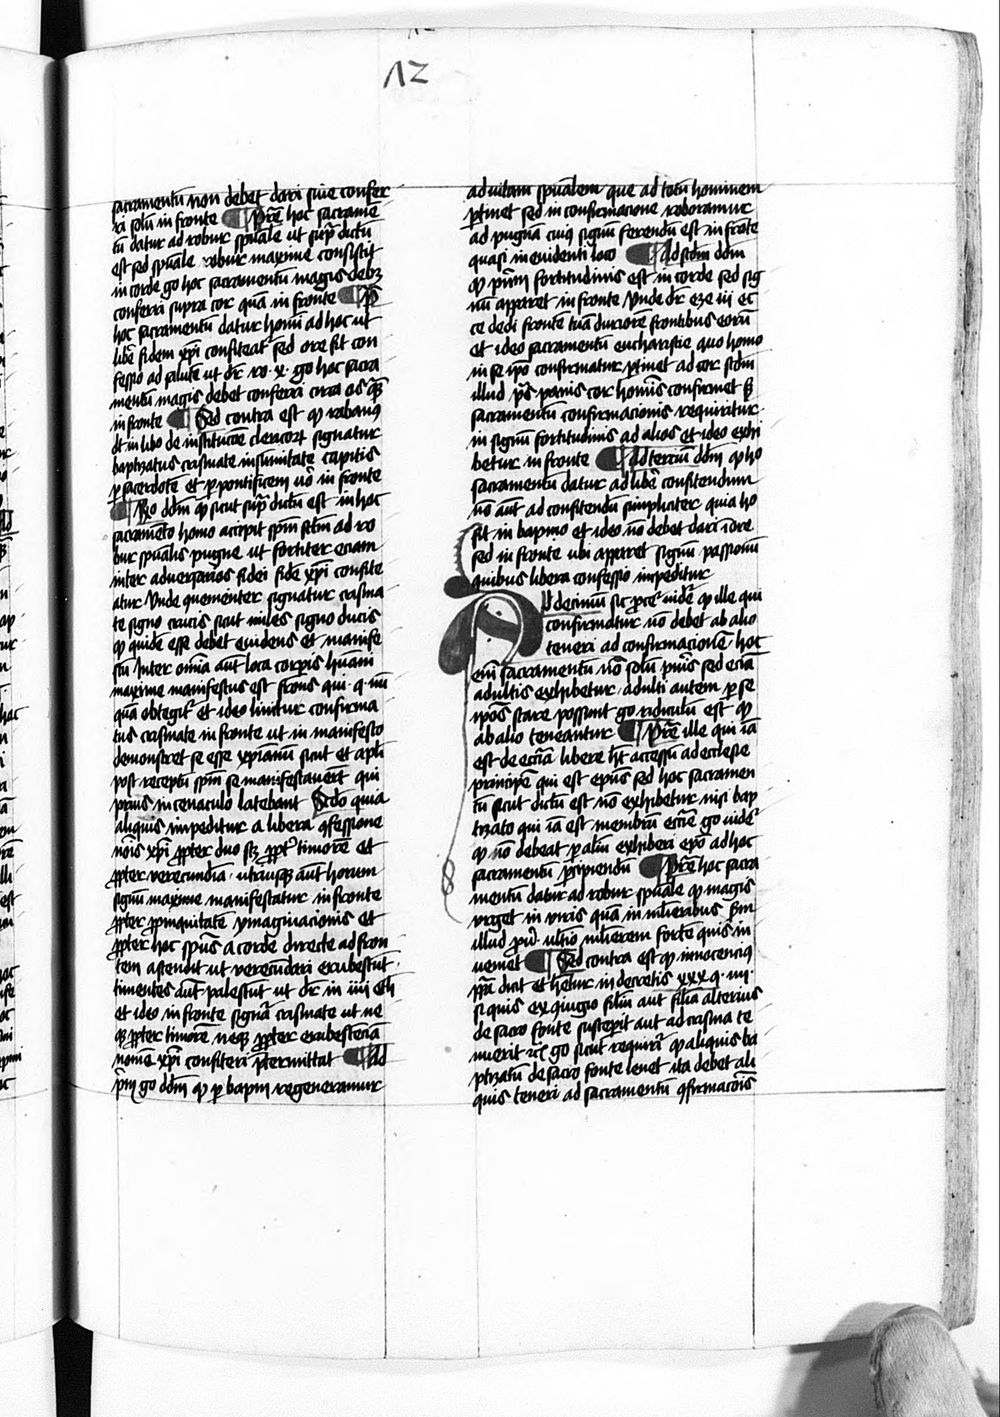 12
sacramentū non debet dari siue confer
ri solū in fronte ¶ Pret̄ hoc sacrame
tū datur ad robur spūale ut supͣ dictū
est sed spūale robur maxime consistit
in corde go hoc sacramentū magis debꝫ
conferri supra cor quā in fronte ¶ Pͬ
hoc sacramentū datur homī ad hoc ut
libͤ fidem xp̄i confiteatͬ sed ore fit con
fessio ad salutē ut dr̄ ro · x · go hoc sacra
mentū magis debet conferri circa os qͣꝫ
in fronte ¶ Sed contra est qꝫ rabanꝯ
dt̄ in libo de institucōe clericoꝝ signatur
baptizatus crismate in summitate capitis
ꝑ sacerdotē et ꝑ pontificem uͦo in fronte
¶ Rͦo dd̄m qꝫ sicut supͣ dictū est in hoc
sacramēto homo accipit spm̄ sc̄tm ad ro
bur spūalis pugne ut fortiter eciam
inter aduersarios fidei fidē xp̄i confite
atur Vnde quementer signatur crisma
te signo crucis sicut miles signo ducis
qꝫ quidē esse debet euidens et manife
stū Inter om̄ia aūt loca corpis hūani
maxime manifestus est frons qui · q · nū
quā obtegitͬ et ideo linitur confirma
tus crismate in fronte ut in manifesto
demonstret se esse xp̄ianū sicut et apl̄i
post receptū spm̄ se manifestauerūt qui
prius in cenaculo latebant Scd̄o quia
aliquis impeditur a libera ꝯfessione
nōis xp̄i ꝓpter duo scꝫ ꝓptͬ timorē et
ꝓpter verecundiā · utriusqꝫ aūt horum
signū maxime manifestatur in fronte
ꝓpter ꝓpinquitatē ymaginacionis et
ꝓpter hoc spūs a corde directe ad fron
tem ascendit ut verecūdari erubescūt ·
timentes aūt palescūt ut dr̄ in iiii Eth
et ideo in fronte signatͬ crismate ut ne
qꝫ ꝓpter timorē neqꝫ ꝓpter erubescēciā
nomē xp̄i confiteri p̄termittat ¶ Ad
pͥm go dd̄m qꝫ ꝑ bapm̄ regeneramur
ad uitam spūalem que ad totū hominem
ꝑtinet sed in confirmacione roboramur
ad pugnā cuiꝯ signū ferendū est in frōte
quasi in euidenti loco ¶ Ad scd̄m dd̄m
qꝫ pͥncipiū fortitudinis est in corde sed sig
nū apparet in fronte Vnde dr̄ eze iii ec
ce dedi frontē tuā duriorē frontibus eorū
et ideo sacramentū eucharistie quo homo
in se ipō confirmatur ꝑtinet ad cor scd̄m
illud ps̄ panis cor homīs confirmet sꝫ
sacramentū confirmacionis requiritur
in signū fortitudinis ad alios et ideo exhi
betur in fronte ¶ Ad terciū dd̄m qꝫ ho
sacramentū datur ad libͤ confitendum
nō aūt ad confitendū simpliciter quia ho
fit in bapmo et ideo nō debet dari ī ore
sed in fronte ubi apparet signū passionū
quibus libera confessio impeditur
Ad decimū sic ꝓcͤ uidet qꝫ ille qui
confirmatur nō debet ab alio
teneri ad confirmacionē · hoc
enī sacramentū nō solū pueris sed eciā
adultis exhibetur · adulti autem ꝑ se
ipōs stare possunt go ridiculū est qꝫ
ab alio teneantur ¶ Pret̄ ille qui iā
est de ecc̄ia libere hꝫ accessū ad ecclesie
principē qui est ep̄us sed hoc sacramen
tū sicut dictū est nō exhibetur nisi bap
tizato qui iā est membrū ecc̄ie go uidetͬ
qꝫ nō debeat ꝑ aliū exhiberi ep̄o ad hoc
sacramentū ꝑcipiendū ¶ Pret̄ hoc sacra
mentū datur ad robur spūale qꝫ magis
viget in viris quā in mlieribus Scd̄m
illud ꝓuͬ ultīo mlierem fortē quis in
ueniet ¶ Sed contra est qꝫ innocenciꝯ
pp̄a dicit et hētur in decretis xxx q · iiii ·
si quis ex ꝯiugio filiū aut filiā alterius
de sacro fonte suscepit aut ad crisma te
nuerit ⁊c̄ go sicut requiritͬ qꝫ aliquis ba
ptizatū de sacro fonte leuet ita debet ali
quis teneri ad sacramentū ꝯfirmacōis